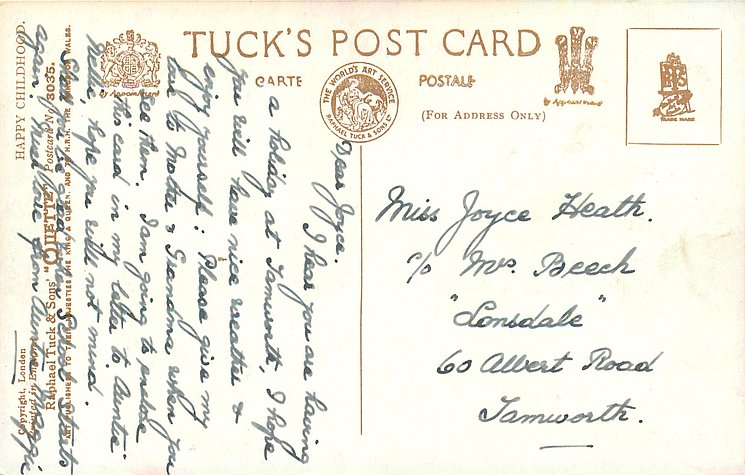 TUCK'S POST CARD
CARTE POSTALE
(FOR ADDRESS ONLY)
By Appointment
THE WORLD'S ART SERVICE
RAPHAEL TUCK & SONS LTD
By Appointment
TRADE MARK
HAPPY CHILDHOOD.
Raphael Tuck & Sons' "OILETTE" Postcard No. 3035.
ART PUBLISHERS TO THEIR MAJESTIES THE KING & QUEEN, AND TO H.R.H. THE PRINCE OF WALES.
Copyright, London
Printed in England
Dear Joyce,
I hear you are having
a holiday at Tamworth, I hope
you will have nice weather &
enjoy yourself: Please give my
love to Mother & Grandma when you
see them. I am going to enclose
this card in my letter to Auntie
Nellie, hope you will not mind.
again. Much love from Auntie
Miss Joyce Heath.
c/o Mrs. Beech
"Lonsdale"
60 Albert Road
Tamworth.